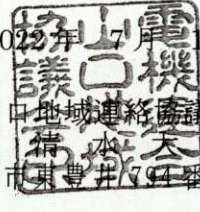 022年 7月 1
口地域連絡協議
水
市東豊井794番
電機連合
山口地域
協議